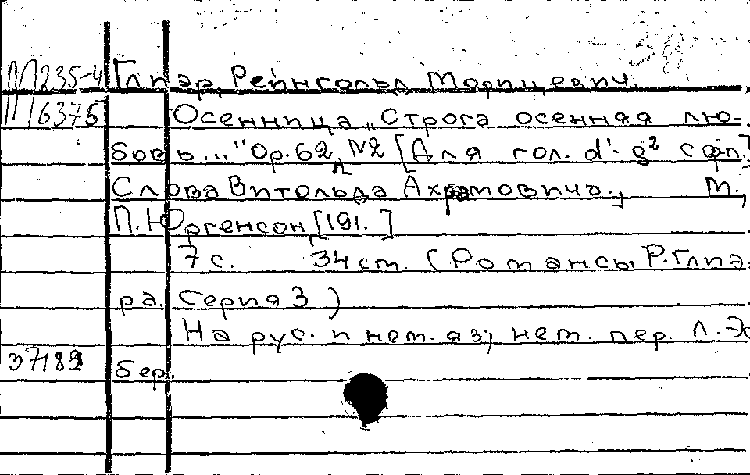 М235-4 Глиэр, Рейнгольд Морицевич.
М6375 Осенница „Строга осенняя лю-
бовь..." Ор.62, №2 [Для гол. d'-g² с фп.]
Слова Витольда Ахрамовича. М.,
П. Юргенсон [191. ]
7 с. 34 ст. (Романсы Р. Глиэ-
ра. Серия 3)
На рус. и нем. яз; нем. пер. Л. Эс
37182 бер.